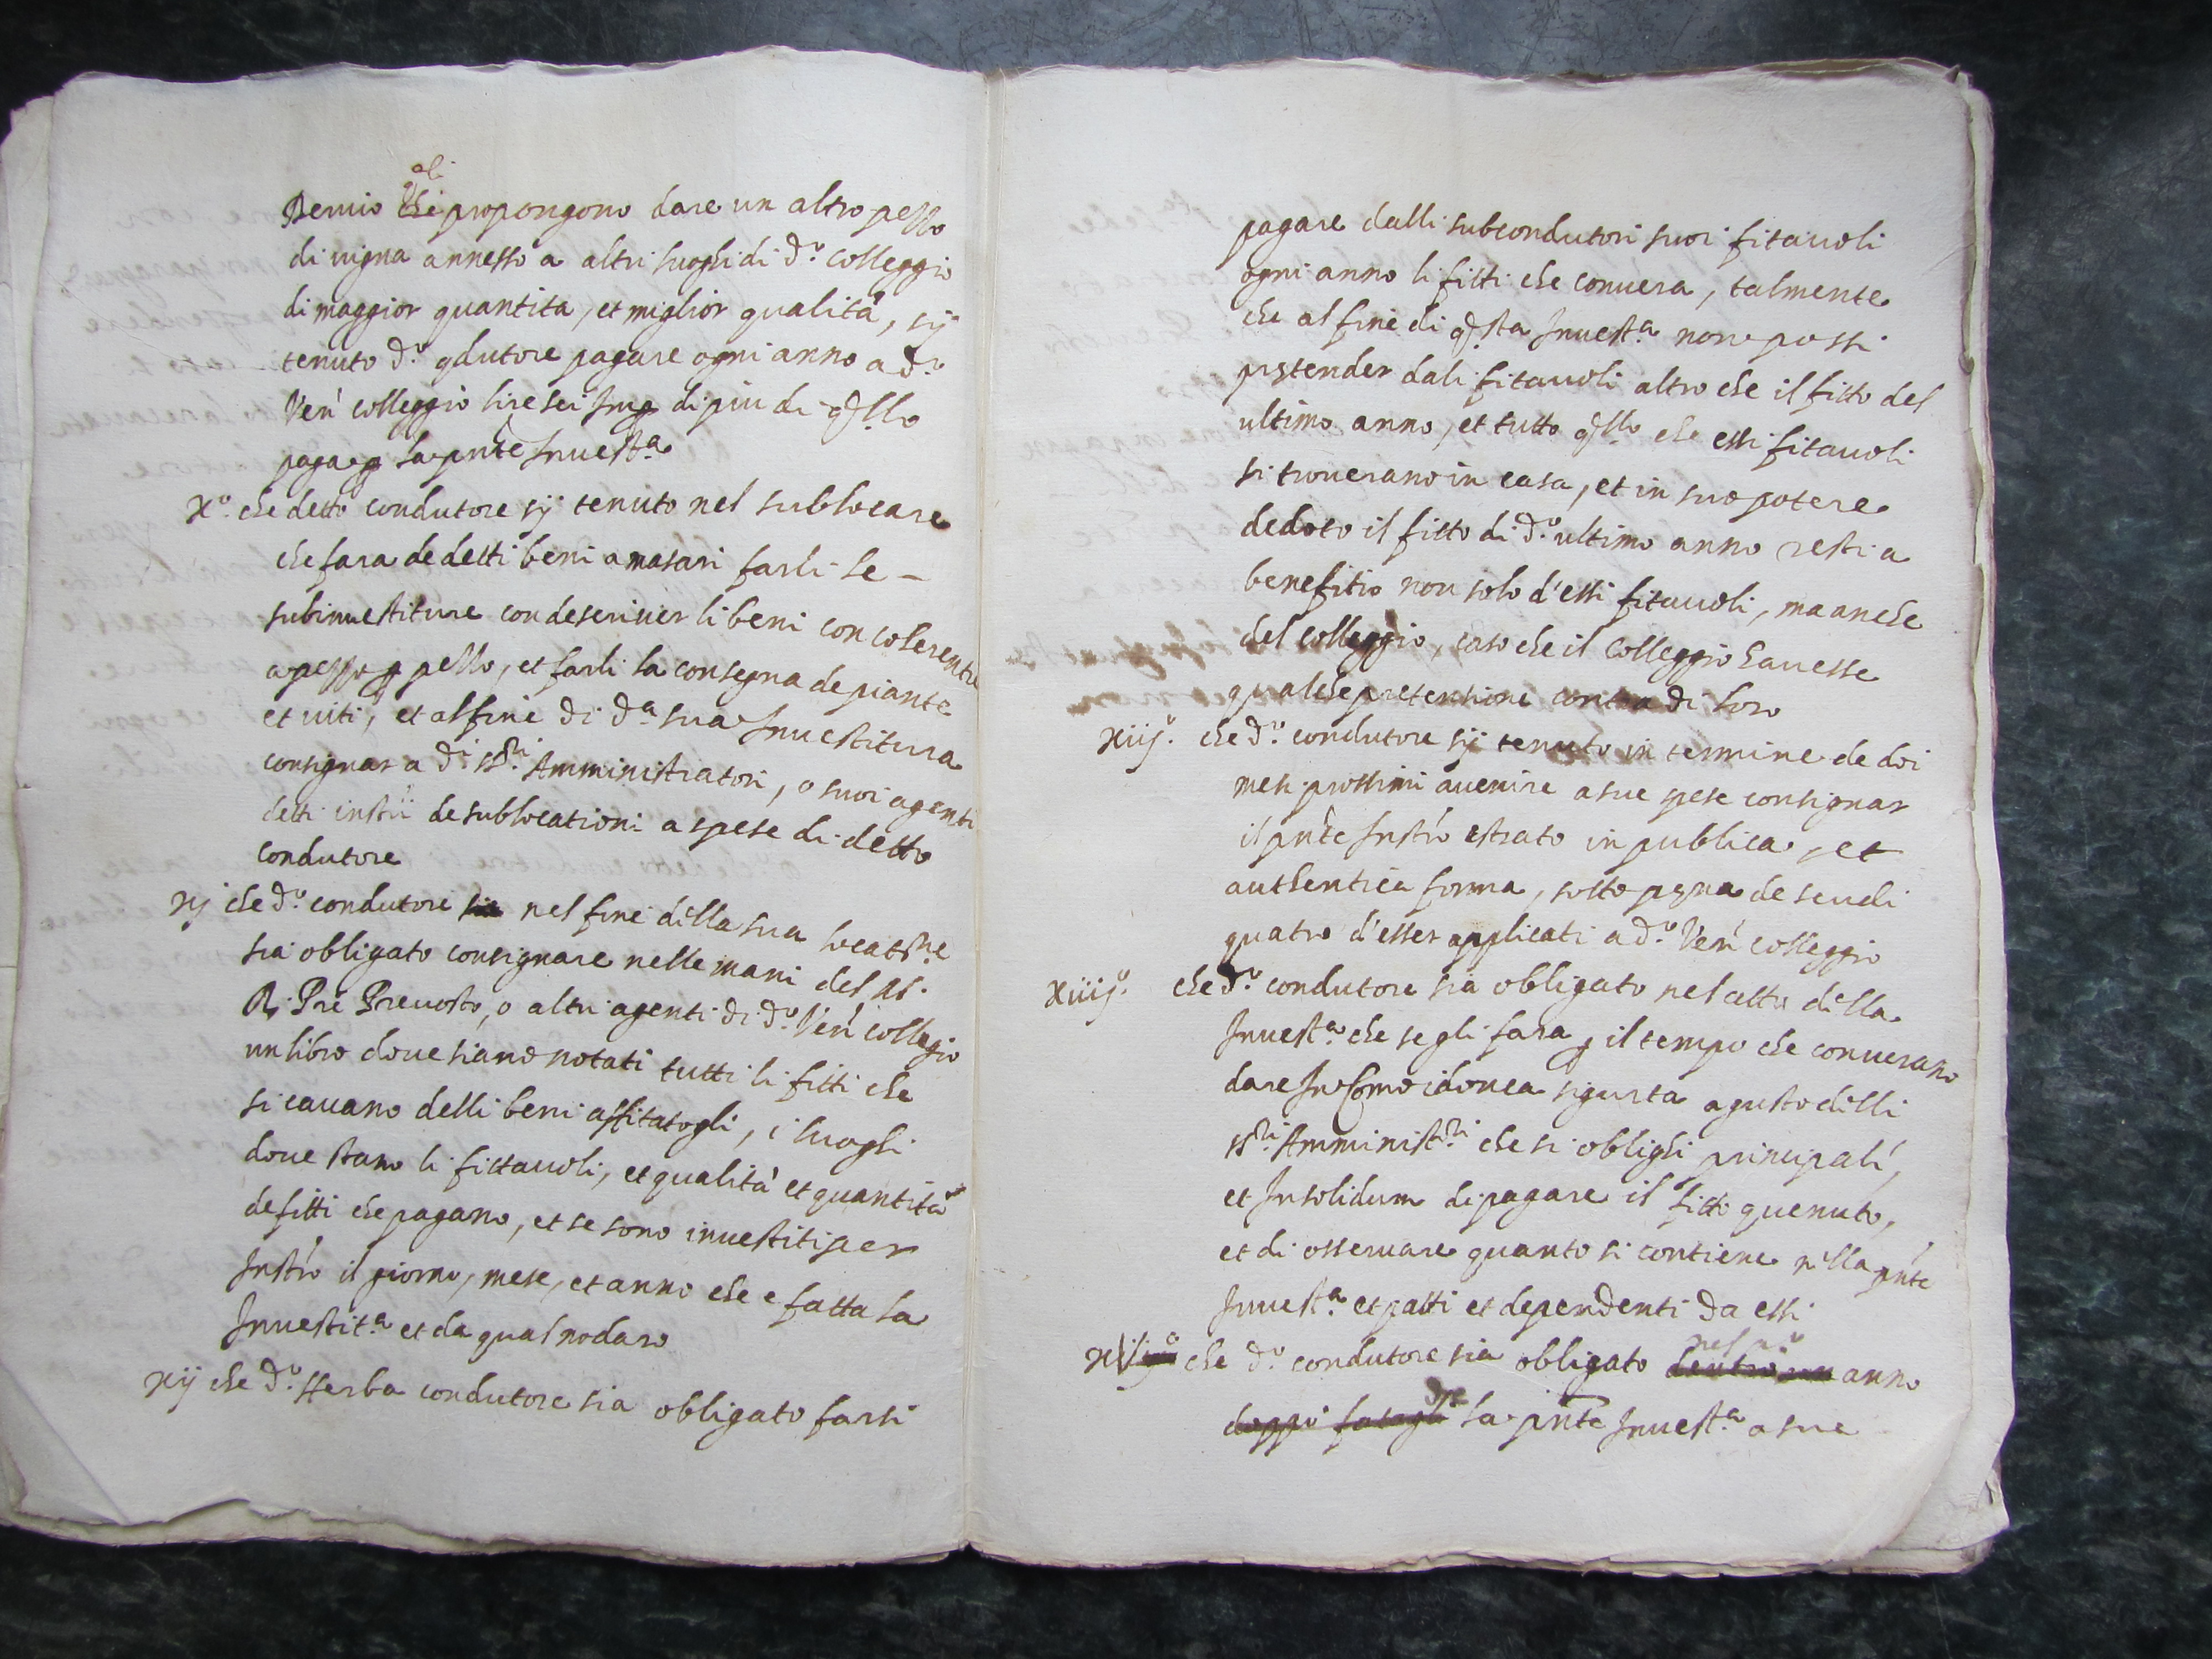 Bernio che propongono dare un altro pezzo
di uigna annesso a altri luoghi di d.º Colleggio
di maggior quantita, et miglior qualità, sij
tenuto d.º qdutore pagare ogni anno a d.º
Ven' colleggio lire sei Imp di piu di q̃llo
paga p la pnte Inuest.ª
X.º che detto condutore sij tenuto nel sublocare
che fara de detti beni a masari farli le -
subinuestiture con descriuer li beni con coherentie
a pezzo p pezzo, et farli la consegna de piante
et uiti, et al fine di d.ª sua Inuestitura
consignar a d.i ss.ri Amministratori, o suoi agenti
detti instri de sublocationi a spese di detto
condutore
xj che d.º condutore nel fine della sua locatne
sia obligato consignare nelle mani del M.
R. Pre Preuosto, o altri agenti di d.º Ven' collegio
un libro doue siano notati tutti li fitti che
si cauano delli beni affitatogli, i luoghi
doue stano li fittauoli, et qualità et quantità
de fitti che pagano, et se sono inuestiti per
Instro il giorno, mese, et anno che e fatta la
Inuestit.ª et da qual nodaro
xij che d.º Herba condutore sia obligato farsi
pagare dalli subcondutori suoi fitauoli
ogni anno li fitti che conuera, talmente
che al fine di q̃sta Inuest.ª non possi
pretender dali fitauoli altro che il fitto del
ultimo anno, et tutto q̃llo che essi fitauoli
si trouerano in casa, et in suo potere
dedoto il fitto di d.º ultimo anno resti a
benefitio non solo d'essi fitauoli, ma anche
del colleggio, caso che il Colleggio hauesse
qualche pretensione contra di loro
xiij.º che d.º condutore sij tenuto in termine de doi
mesi prossimi auenire a sue spese consignar
il pnte Instro estrato in publica, et
authentica forma, sotto pena de scudi
quatro d'esser applicati a d.º Ven' colleggio
xiiij.º che d.º condutore sia obligato nel atto della
Inuest.ª che se gli fara p il tempo che conuerano
dare In Como idonea sigurta a gusto delli
ss.ri Amminist.ri che si oblighi principalr,
et Insolidum di pagare il fitto quenuto,
et di osseruare quanto si contiene nella pnte
Inuest.ª et patti et dependenti da essi
che d.º condutore sia obligato dentro un nel p.º anno
doppo la pnte Inuest.ª a sue